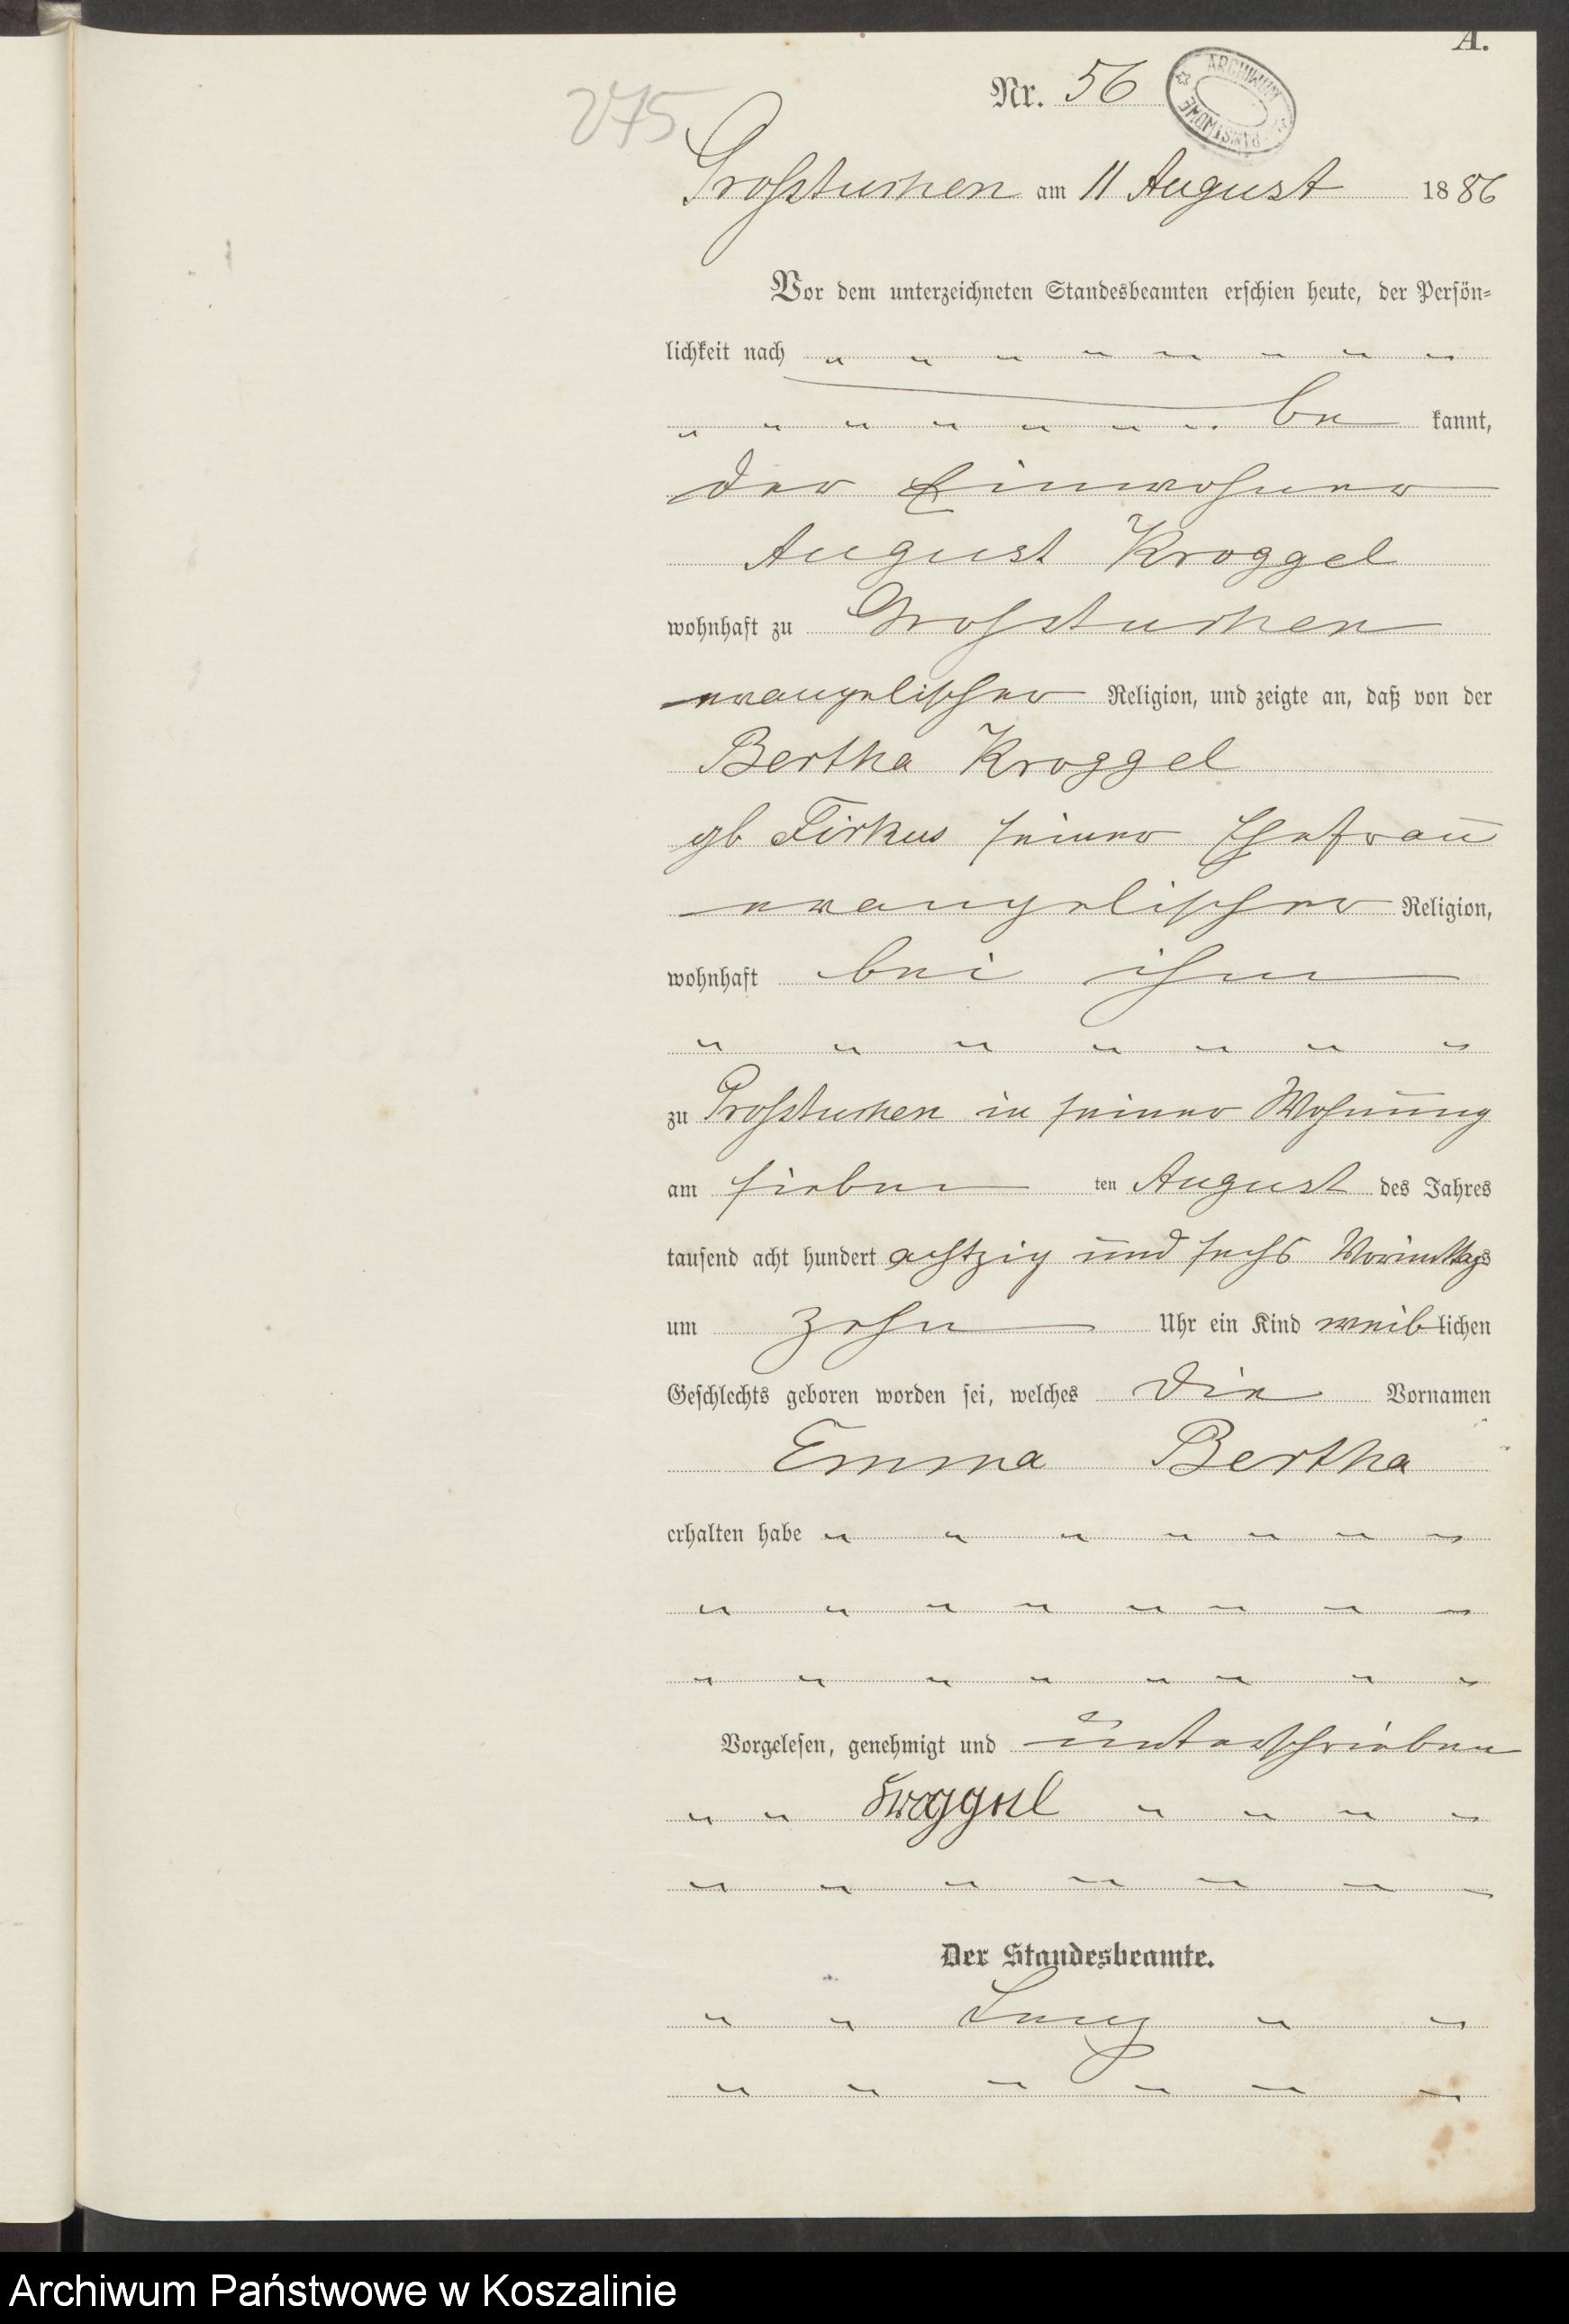 A.
Nr. 56
ARCHIWUM PAŃSTWOWE
275
Großtuchen am 11 August 1886
Vor dem unterzeichneten Standesbeamten erschien heute, der Persön-
lichkeit nach
be kannt,
der Einwohner
August Kroggel
wohnhaft zu Großtuchen
evangelischer Religion, und zeigte an, daß von der
Bertha Kroggel
gb Firkus seiner Ehefrau
evangelischer Religion,
wohnhaft bei ihm
zu Großtuchen in seiner Wohnung
am sieben ten August des Jahres
tausend acht hundert achtzig und sechs Vormittags
um zehn Uhr ein Kind weiblichen
Geschlechts geboren worden sei, welches die Vornamen
Emma Bertha
erhalten habe
Vorgelesen, genehmigt und unterschrieben
Kroggel
Der Standesbeamte.
Archiwum Państwowe w Koszalinie